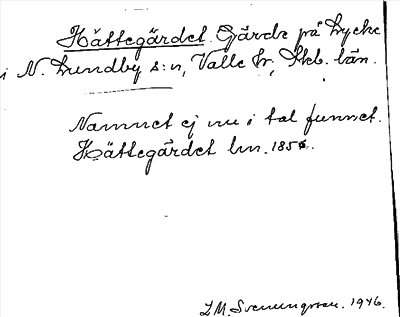 Hättegärdet. Gärde på Lycke
i N. Lundby s:n, Valle hr, Skb. län.
Namnet ej nu i tal funnet.
Hättegärdet lm. 1856.
I.M. Svenungsson. 1946.